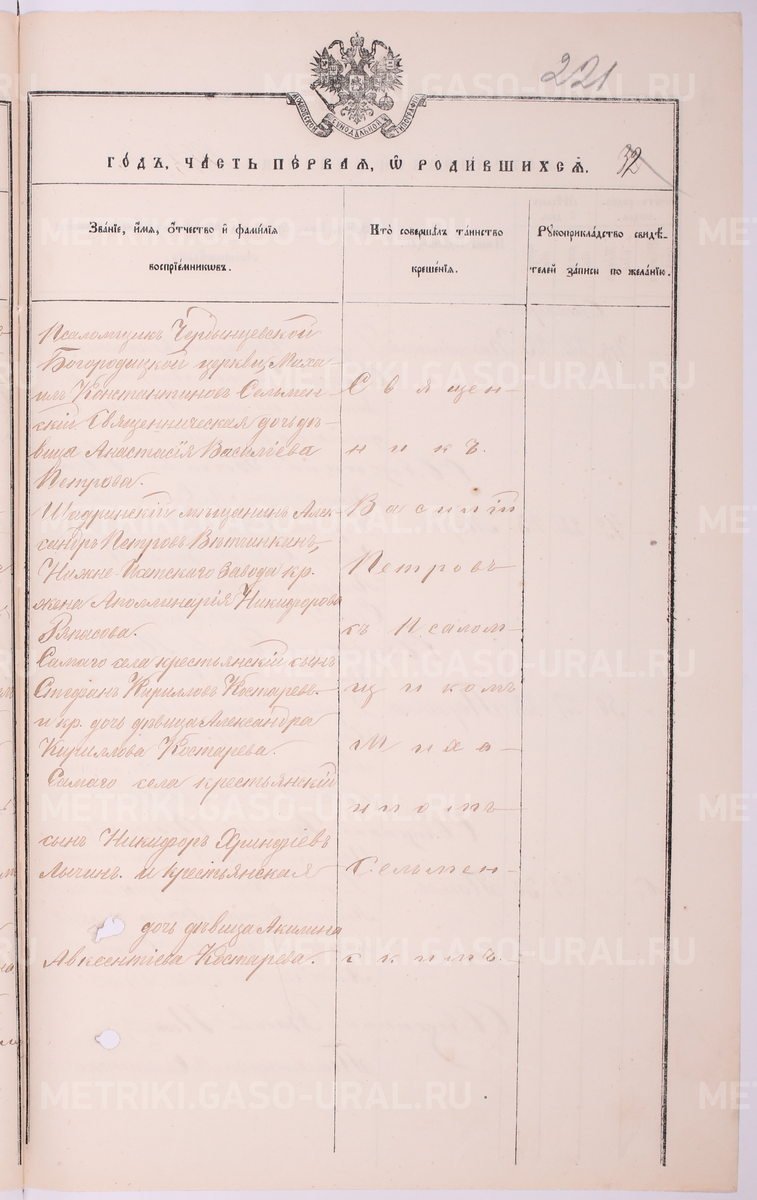 221
МОСКОВСКОЙ СѴНОДАЛЬНОЙ ТИПОГРАФІИ
ГОДЪ, ЧАСТЬ ПЕРВАЯ, Ѡ РОДИВШИХСЯ. 32
Званіе, имя, отчество и фамилія
воспріемниковъ.
Кто совершалъ таинство
крещенія.
Рукоприкладство свидѣ-
телей записи по желанію.
Псаломщикъ
Богородицкой церкви, Миха-
илъ Константиновъ Сельмен-
скій Священническая дочь дѣ-
вица Анастасія Васильева
Петрова.
Шадринскій мѣщанинъ Алек-
сандръ Петровъ
Нижне- Завода кр.
жена Аполлинарія Никифорова
Самаго села крестьянскій сынъ
Стефанъ Кирилловъ Костаревъ.
и кр. дочь дѣвица Александра
Кириллова Костарева.
Самаго села крестьянскій
сынъ Никифоръ
Лычин. и крестьянская
дочь дѣвица Акилина
Авксентіева Костарева.
Священ-
никъ.
Василій
Петровъ
съ Псалом-
щикомъ
Миха-
иломъ
Сельмен-
скимъ.
METRIKI.GASO-URAL.RU